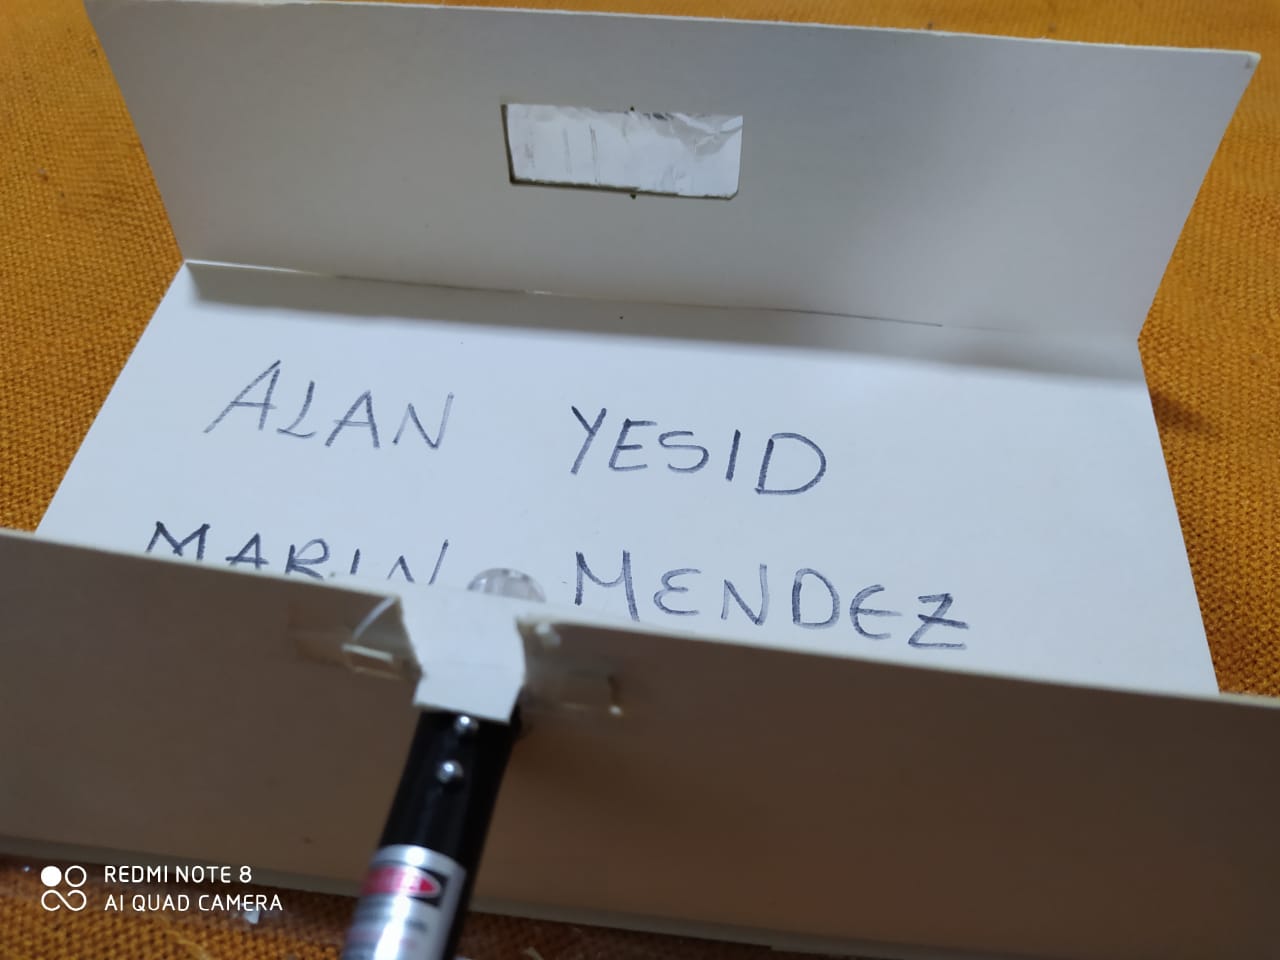 ALAN YESID
MARIN MENDEZ
REDMI NOTE 8
AI QUAD CAMERA